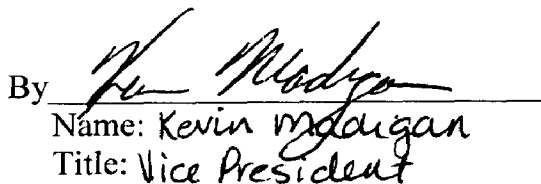 By Kevin Madigan
Name: Kevin Madigan
Title: Vice President